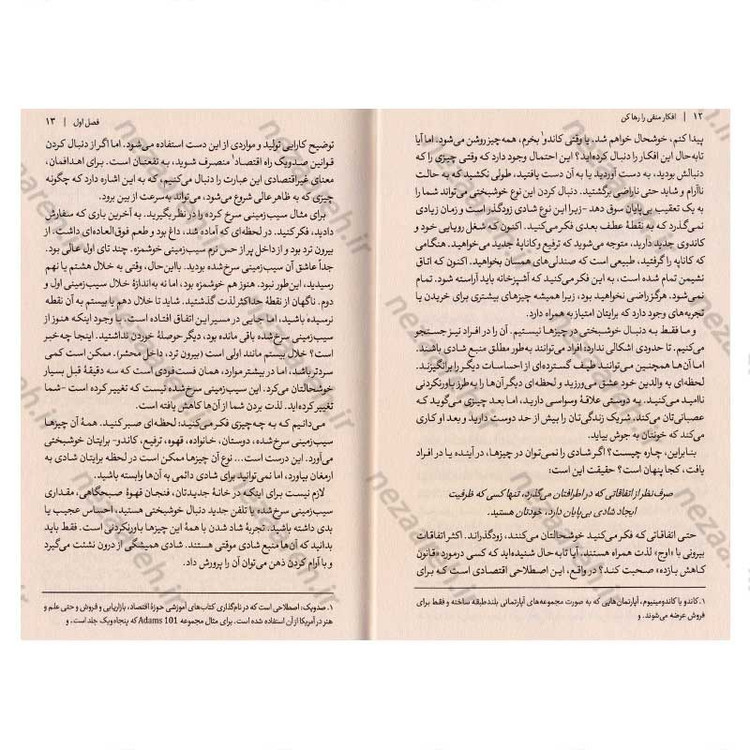 ۱۲ | افکار منفی را رها کن
پیدا کنم، خوشحال خواهم شد. یا وقتی کاندو۱ بخرم، همه چیز روشن می‌شود. اما آیا
تابه‌حال این افکار را دنبال کرده‌اید؟ این احتمال وجود دارد که وقتی چیزی را که
دنبالش بودید، به دست آوردید یا به آن دست یافتید، طولی نکشید که به حالت
ناآرام و شاید حتی ناراضی برگشتید. دنبال کردن این نوع خوشبختی می‌تواند شما را
به یک تعقیب بی‌پایان سوق دهد -زیرا این نوع شادی زودگذر است و زمان زیادی
نمی‌گذرد که به نقطهٔ عطف بعدی فکر می‌کنید. اکنون که شغل رویایی خود و
کاندوی جدید دارید، متوجه می‌شوید که ترفیع و کاناپهٔ جدید می‌خواهید. هنگامی
که کاناپه را گرفتید، طبیعی است که صندلی‌های همسان بخواهید. اکنون که اتاق
نشیمن تمام شده است، به این فکر می‌کنید که آشپزخانه باید آراسته شود. تمام
نمی‌شود. هرگز راضی نخواهید بود، زیرا همیشه چیزهای بیشتری برای خریدن یا
تجربه‌های وجود دارد که برایتان امتیاز به همراه دارد.
و ما فقط به دنبال خوشبختی در چیزها نیستیم. آن را در افراد نیز جستجو
می‌کنیم. تا حدودی اشکالی ندارد، افراد می‌توانند به‌طور مطلق منبع شادی باشند.
اما آن‌ها همچنین می‌توانند طیف گسترده‌ای از احساسات دیگر را برانگیزند.
لحظه‌ای به والدین خود عشق می‌ورزید و لحظه‌ای دیگر آن‌ها را به‌طرز باورنکردنی
ناامید می‌کنید. به دوستی علاقهٔ وسواسی دارید، اما بعد چیزی می‌گوید که
عصبانی‌تان می‌کند، شریک زندگی‌تان را بیش از حد دوست دارید و بعد او کاری
می‌کند که خونتان به جوش بیاید.
بنابراین، چاره چیست؟ اگر شادی را نمی‌توان در چیزها، در آینده یا در افراد
یافت، کجا پنهان است؟ حقیقت این است:
صرف‌نظر از اتفاقاتی که در اطرافتان می‌گذرد، تنها کسی که ظرفیت
ایجاد شادی بی‌پایان دارد، خودتان هستید.
حتی اتفاقاتی که فکر می‌کنید خوشحالتان می‌کنند، زودگذراند. اکثر اتفاقات
بیرونی با «اوج» لذت همراه هستند. آیا تا به حال شنیده‌اید که کسی درمورد «قانون
کاهش بازده» صحبت کند؟ در واقع، این اصطلاحی اقتصادی است که برای
۱. کاندو یا کاندومینیوم، آپارتمان‌هایی که به صورت مجموعه‌های آپارتمانی بلندطبقه ساخته و فقط برای
فروش عرضه می‌شوند. و
فصل اول | ۱۳
توضیح کارایی تولید و مواردی از این دست استفاده می‌شود. اما اگر از دنبال کردن
قوانین صدویک راه اقتصاد۱ منصرف شوید، به نفعتان است. برای اهدافمان،
معنای غیراقتصادی این عبارت را دنبال می‌کنیم، که به این اشاره دارد که چگونه
چیزی که به ظاهر عالی شروع می‌شود، می‌تواند به‌سرعت از بین برود.
برای مثال سیب‌زمینی سرخ کرده را در نظر بگیرید. به آخرین باری که سفارش
دادید، فکر کنید. در لحظه‌ای که آماده شد، داغ بود و طعم فوق‌العاده‌ای داشت. از
بیرون ترد بود و از داخل پر از حس نرم سیب‌زمینی خوشمزه. چند تای اول عالی بود.
جداً عاشق آن سیب‌زمینی سرخ‌شده بودید. بااین‌حال، وقتی به خلال هشتم یا نهم
رسیدید، این‌طور نبود. هنوز هم خوشمزه بود، اما نه به‌اندازهٔ خلال سیب‌زمینی اول و
دوم. ناگهان از نقطهٔ حداکثر لذت گذشتید. شاید تا خلال دهم یا بیستم به آن نقطه
نرسیده باشید، اما جایی در مسیر این اتفاق افتاده است. با وجود اینکه هنوز از
سیب‌زمینی سرخ‌شده باقی مانده بود، دیگر حوصلهٔ خوردن نداشتید. اینجا چه خبر
است؟ خلال بیستم مانند اولی است (بیرون ترد، داخل محشر). ممکن است کمی
سردتر باشد، اما در بیشتر موارد، همان فست‌فودی است که سه دقیقهٔ قبل بسیار
خوشحالتان می‌کرد. این سیب‌زمینی سرخ‌شده نیست که تغییر کرده است -شما
تغییر کرده‌اید. لذت بردن شما از آن‌ها کاهش یافته است.
می‌دانیم که به چه‌چیزی فکر می‌کنید: لحظه‌ای صبر کنید. همهٔ آن چیزها
سیب‌زمینی سرخ‌شده، دوستان، خانواده، قهوه، ترفیع، کاندو- برایتان خوشبختی
می‌آورد. این درست است... نوع آن چیزها ممکن است در لحظه برایتان شادی به
ارمغان بیاورد، اما نمی‌توانید برای شادی دائمی به آن‌ها وابسته باشید.
لازم نیست برای اینکه در خانهٔ جدیدتان، فنجان قهوهٔ صبحگاهی، مقداری
سیب‌زمینی سرخ شده یا تلفن جدید دنبال خوشبختی هستید، احساس عجیب یا
بدی داشته باشید. تجربهٔ شاد شدن با همهٔ این چیزها باورنکردنی است. فقط باید
بدانید که آن‌ها منبع شادی موقتی هستند. شادی همیشگی از درون نشئت می‌گیرد
و با آرام کردن ذهن می‌توان آن را پرورش داد.
۱. صدویک، اصطلاحی است که در نام‌گذاری کتاب‌های آموزشی حوزهٔ اقتصاد، بازاریابی و فروش و حتی علم و
هنر در آمریکا از آن استفاده شده است. برای مثال مجموعه Adams 101 که پنجاه‌ویک جلد است. و
nezaareh.ir